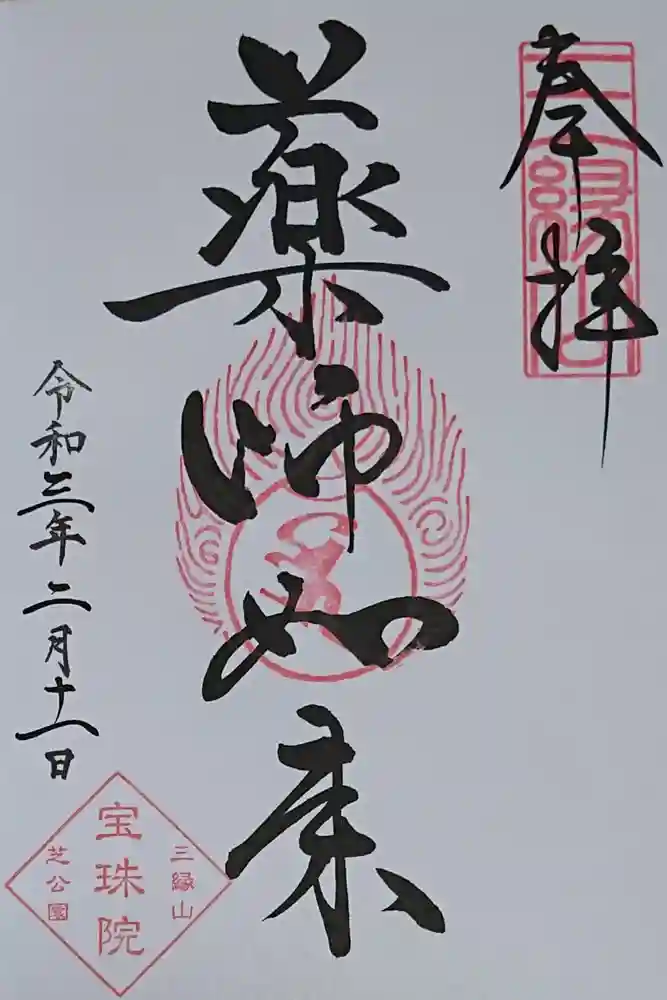 奉拝
三縁山
薬師如来
令和三年二月十一日
三縁山
宝珠院
芝公園